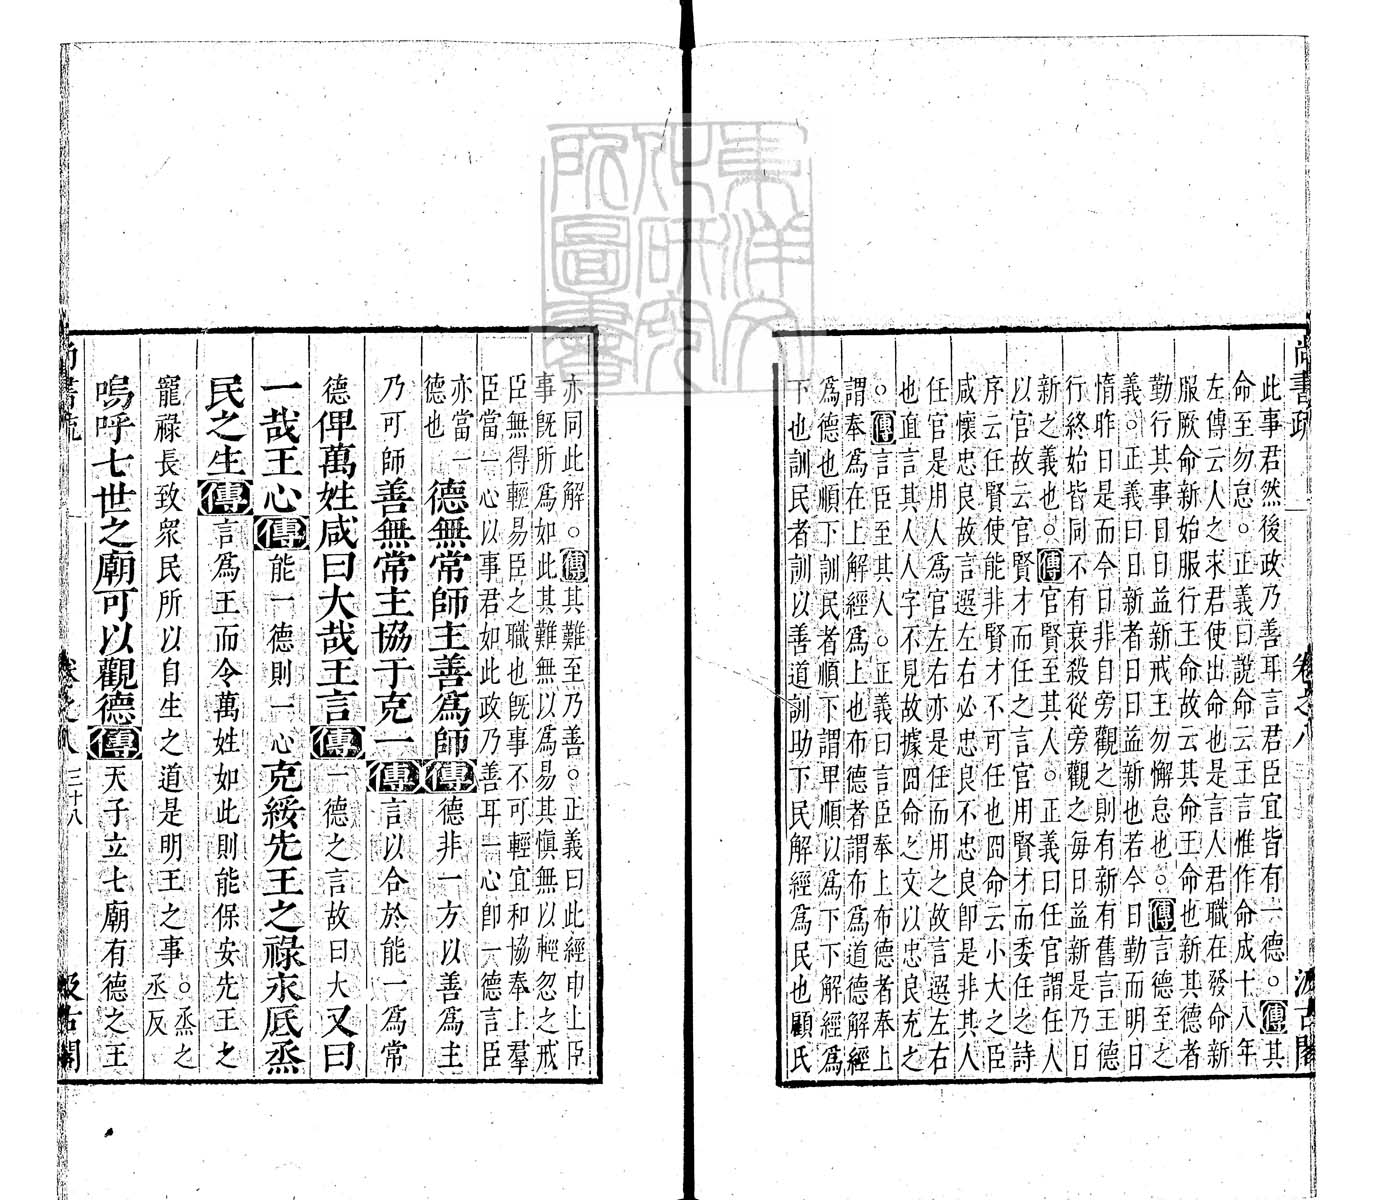 尚書疏
卷之八
汲古閣
此事君然後政乃善耳言君臣宜皆有一德。傳其
命至勿怠。正義曰說命云王言惟作命成十八年
左傳云人之求君使出命也是言人君職在發命新
服厥命新始服行王命故云其命王命也新其德者
勤行其事日日益新戒王勿懈怠也。傳言德至之
義。正義曰日新者日日益新也若今日勤而明日
惰昨日是而今日非自旁觀之則有新有舊言王德
行終始皆同不有衰殺從旁觀之每日益新是乃日
新之義也。傳官賢至其人。正義曰任官謂任人
以官故云官賢才而任之言官用賢才而委任之詩
序云任賢使能非賢才不可任也冏命云小大之臣
咸懷忠良故言選左右必忠良不忠良卽是非其人
任官是用人爲官左右亦是任而用之故言選左右
也直言其人人字不見故據冏命之文以忠良充之
。傳言臣至其人。正義曰言臣奉上布德者奉上
謂奉爲在上解經爲上也布德者謂布爲道德解經
爲德也順下訓民者順下謂甲順以爲下下解經爲
下也訓民者訓以善道訓助下民解經爲民也顧氏
亦同此解。傳其難至乃善。正義曰此經申上臣
事旣所爲如此其難無以爲易其愼無以輕忽之戒
臣無得輕易臣之職也旣事不可輕宜和協奉上羣
臣當一心以事君如此政乃善耳一心卽一德言臣
亦當一
德也
德無常師主善爲師傳德非一方以善爲主
乃可師善無常主協于克一傳言以合於能一爲常
德俾萬姓咸曰大哉王言傳一德之言故曰大又曰
一哉王心傳能一德則一心克綏先王之祿永厎烝
民之生傳言爲王而令萬姓如此則能保安先王之
寵祿長致衆民所以自生之道是明王之事。烝之
丞反
嗚呼七世之廟可以觀德傳天子立七廟有德之王
尚書疏
卷之八
三十八
汲古閣
東洋文
化研究
所圖書